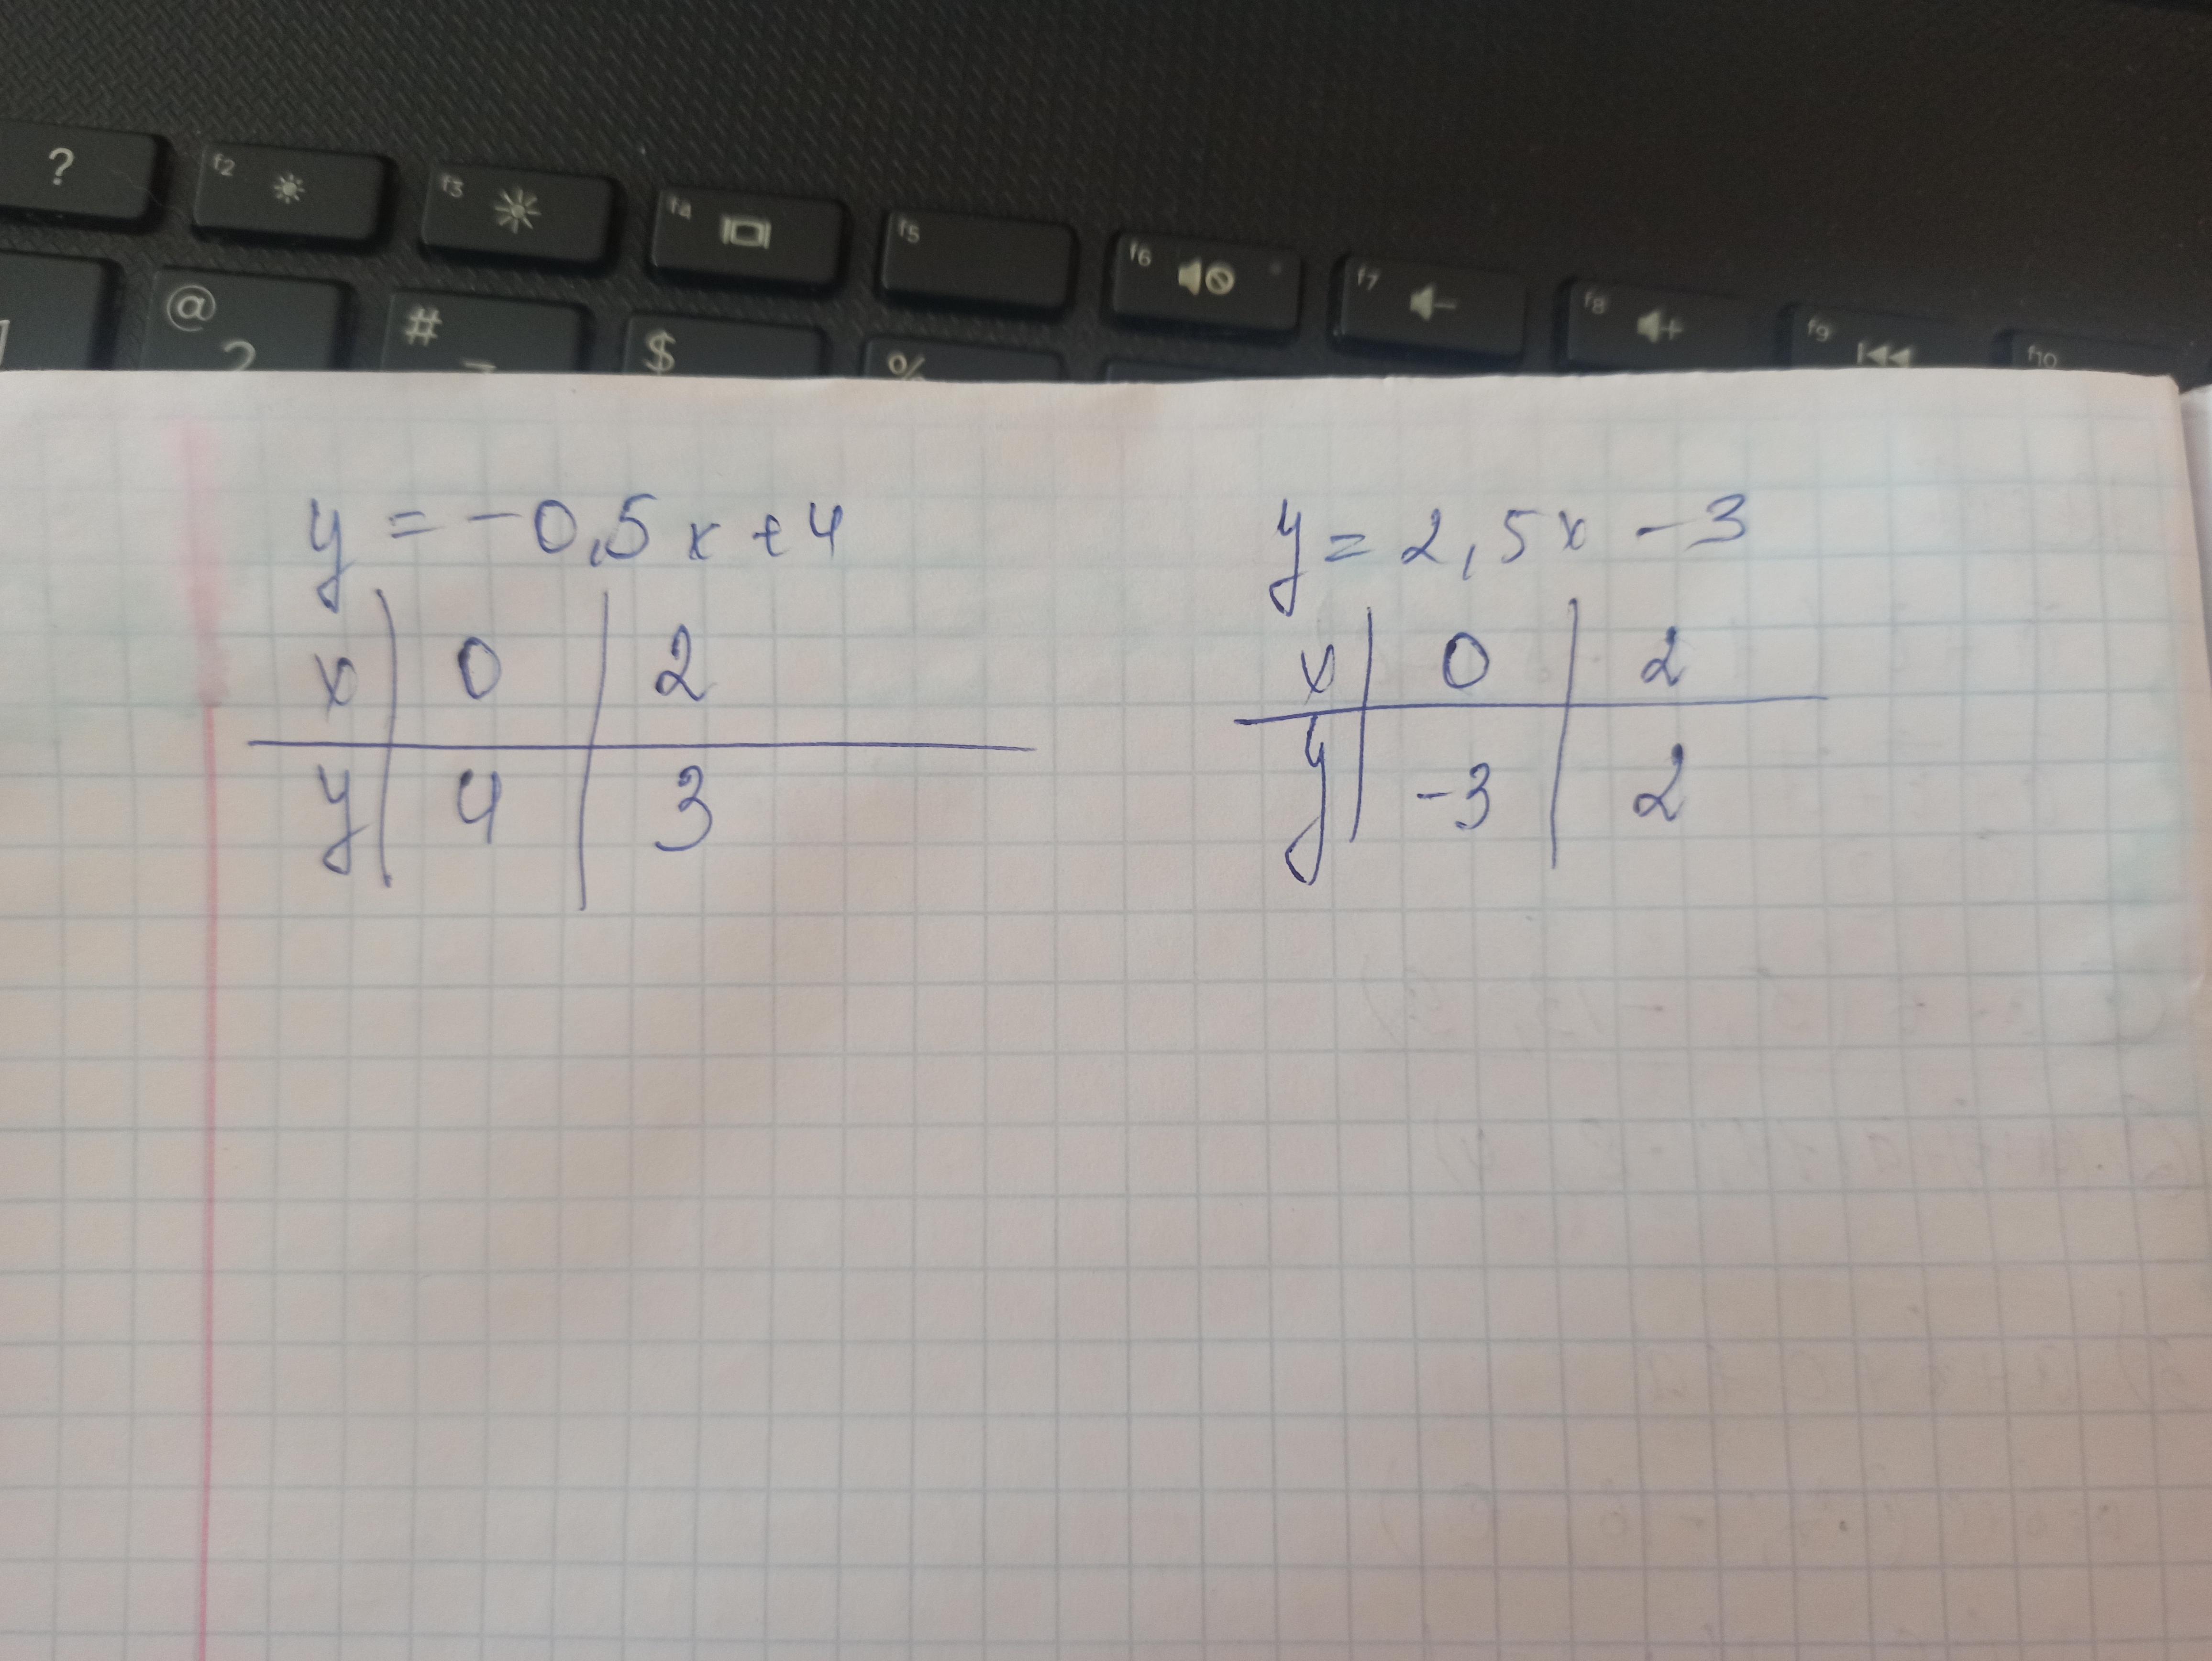 ? f2 f3 f4 f5 f6 f7 f8 f9 f10
@ # $ %
2
y = -0,5x+4
x 0 2
y 4 3
y = 2,5x - 3
x 0 2
y -3 2